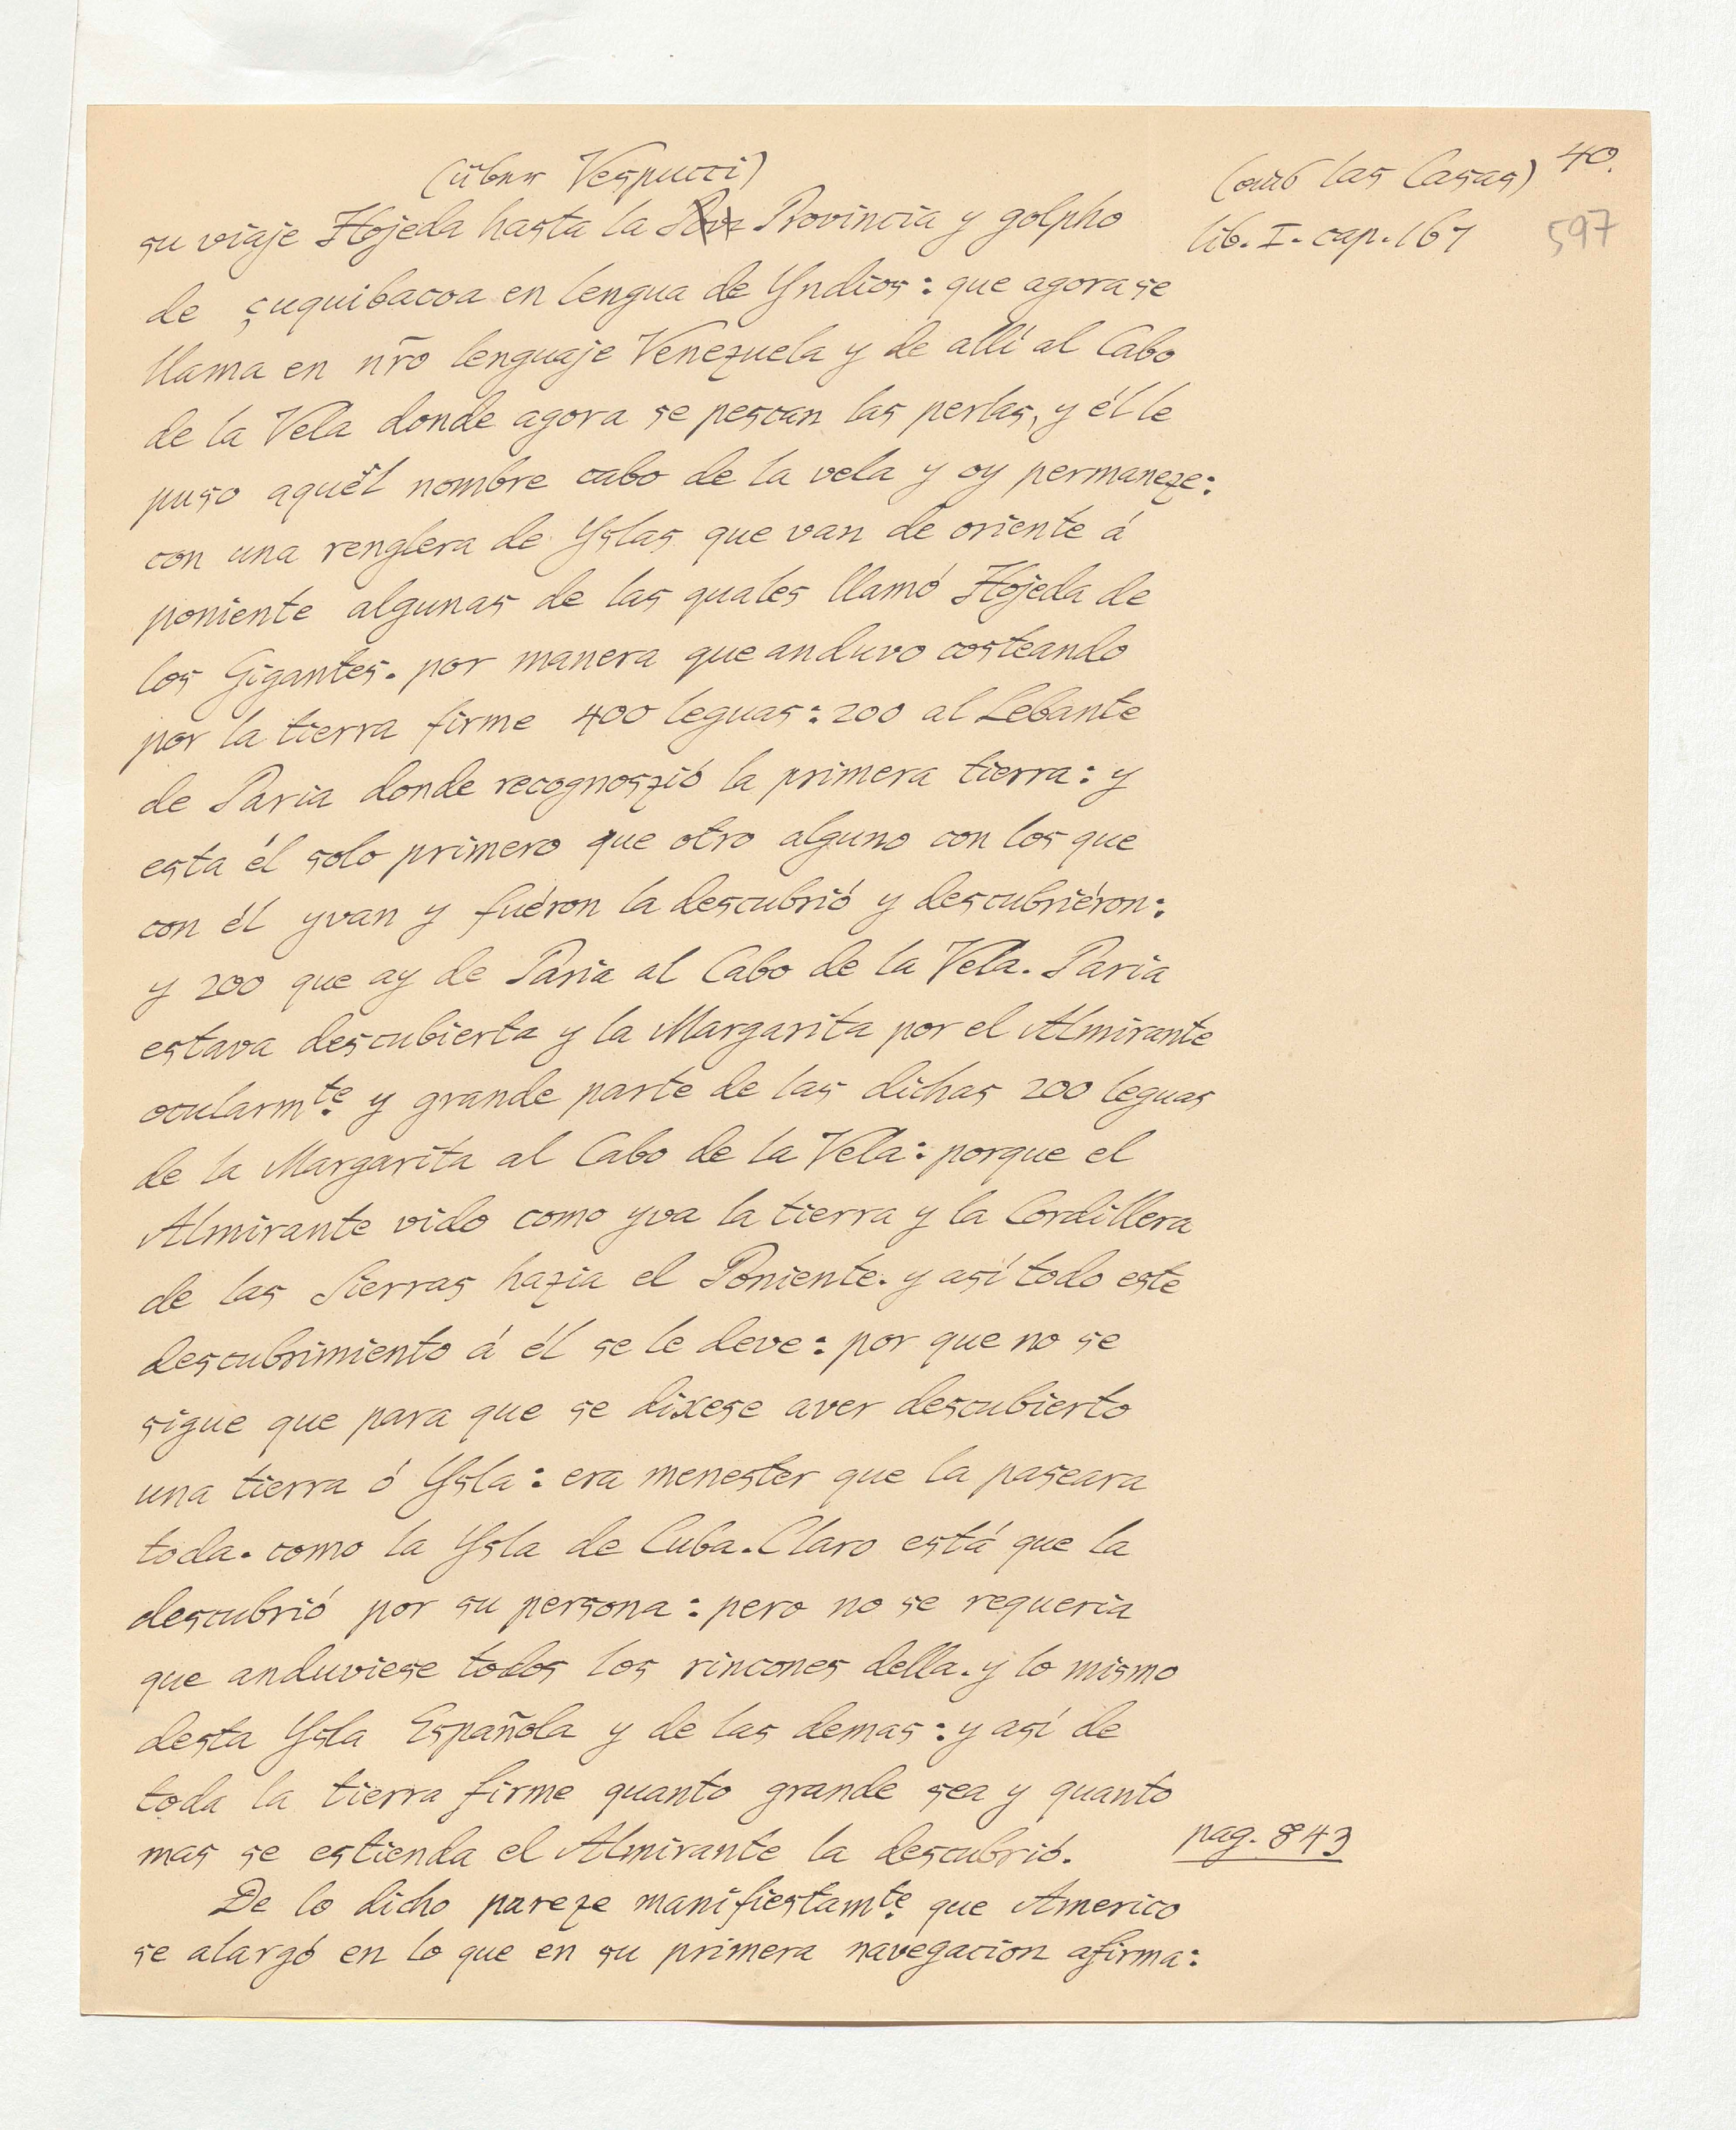 (über Vespucci)
(aus las Casas) 40.
su viaje Hojeda hasta la Provincia y golpho
lib. I. cap. 167
597
de çuquibacoa en lengua de Yndios: que agora se
llama en nr̃o lenguaje Venezuela y de allí al Cabo
de la Vela donde agora se pescan las perlas, y él le
puso aquél nombre cabo de la vela y oy permaneze:
con una renglera de Yslas que van de oriente á
poniente algunas de las quales llamó Hojeda de
los Gigantes. por manera que anduvo costeando
por la tierra firme 400 leguas: 200 al Lebante
de Paria donde recognoszió la primera tierra: y
esta él solo primero que otro alguno con los que
con él yvan y fuéron la descubrió y descubriéron:
y 200 que ay de Paria al Cabo de la Vela. Paria
estava descubierta y la Margarita por el Almirante
ocularmte. y grande parte de las dichas 200 leguas
de la Margarita al Cabo de la Vela: porque el
Almirante vido como yva la tierra y la Cordillera
de las Sierras hazia el Poniente. y así todo este
descubrimiento á él se le deve: por que no se
sigue que para que se dixese aver descubierto
una tierra ó Ysla: era menester que la paseara
toda. como la Ysla de Cuba. Claro está que la
descubrió por su persona: pero no se requeria
que anduviese todos los rincones della. y lo mismo
desta Ysla Española y de las demas: y así de
toda la tierra firme quanto grande sea y quanto
mas se estienda el Almirante la descubrió.
pag. 843
De lo dicho pareze manifiestamte. que Americo
se alargó en lo que en su primera navegacion afirma: